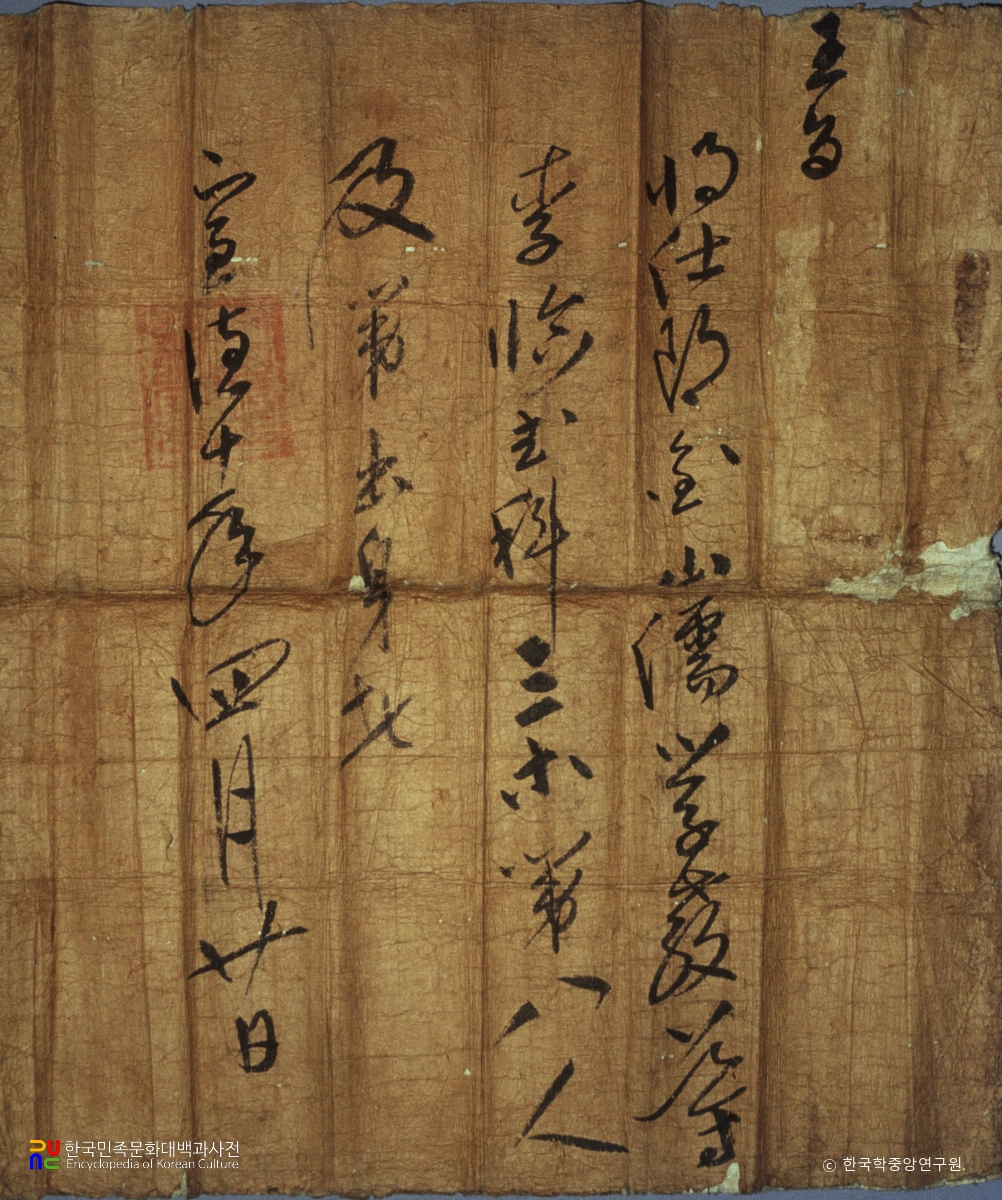 王旨
將仕郎金山儒學敎導
李臨武科三等第八人
及第出身者
宣德十年四月廿日
한국민족문화대백과사전
Encyclopedia of Korean Culture
© 한국학중앙연구원.